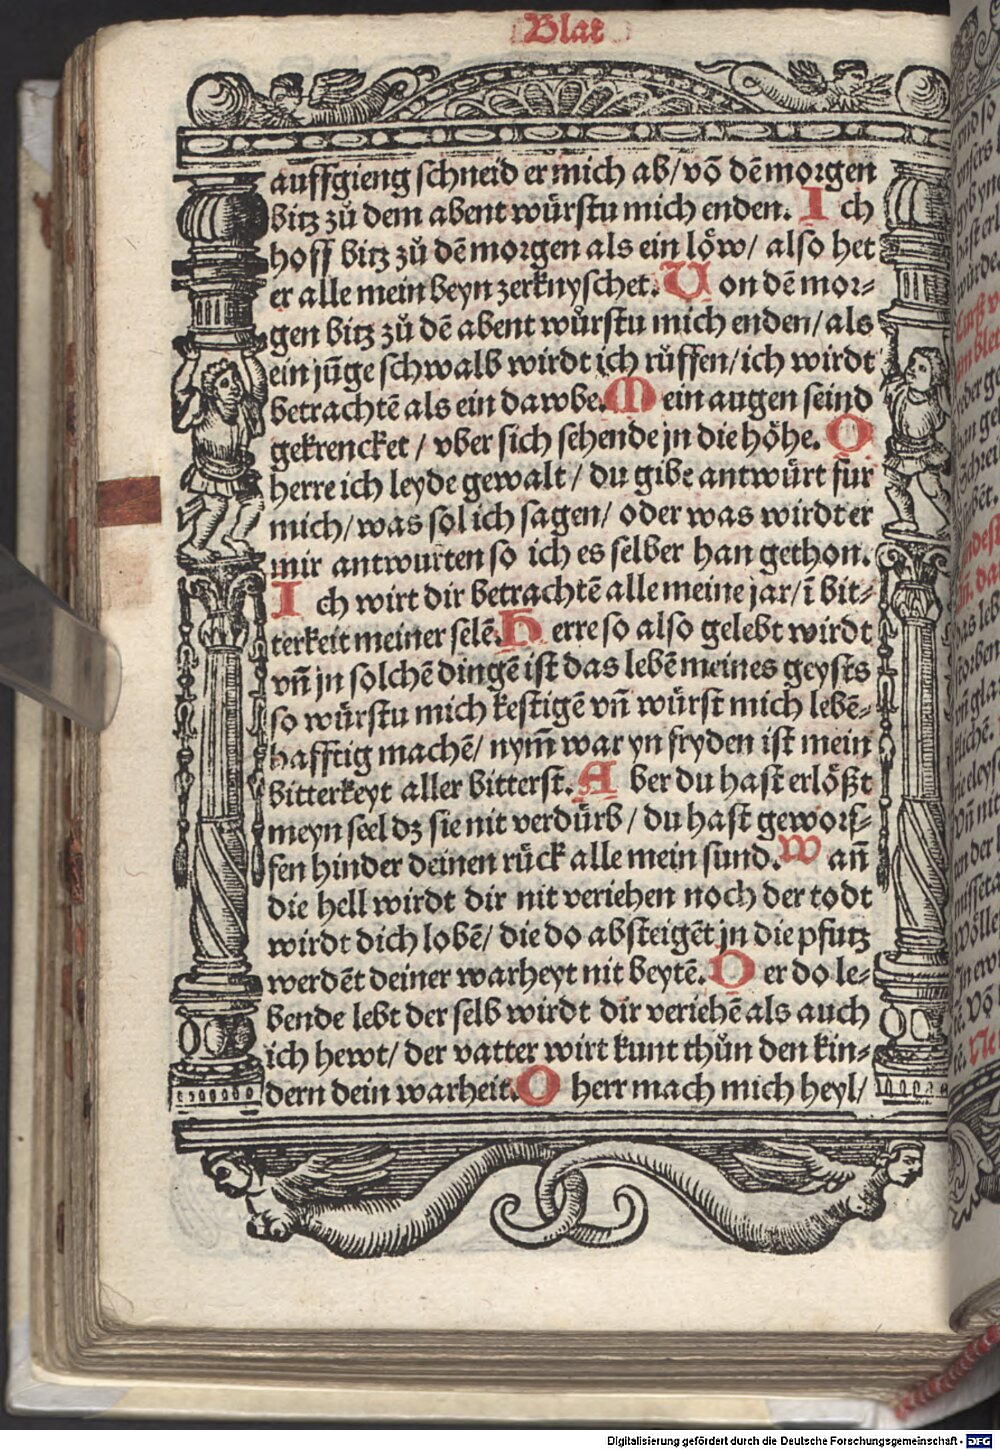 Blat
auffgieng schneid er mich ab/ vō dē morgen
bitz zů dem abent würstu mich enden. Ich
hoff bitz zů dē morgen als ein löw/ also het
er alle mein beyn zerknyschet. Von dē mor⸗
gen bitz zů dē abent wůrstu mich enden/ als
ein jūge schwalb wirdt ich rüffen/ ich wirdt
betrachtē als ein dawbe. Mein augen seind
gekrencket / vber sich sehende jn die höhe. O
herre ich leyde gewalt / du gibe antwürt für
mich/ was sol ich sagen/ oder was wirdt er
mir antwurten so ich es selber han gethon.
Ich wirt dir betrachtē alle meine jar/ ī bit⸗
terkeit meiner selē. Herre so also gelebt wirdt
vñ jn solchē dingē ist das lebē meines geysts
so würstu mich kestigē vñ würst mich lebē⸗
hafftig machē/ nym̄ war yn fryden ist mein
bitterkeyt aller bitterst. Aber du hast erlößt
meyn seel dz sie nit verdürb / du hast geworf⸗
fen hinder deinen rück alle mein sund. Wañ
die hell wirdt dir nit veriehen noch der todt
wirdt dich lobē/ die do absteigēt jn die pfutz
werdēt deiner warheyt nit beytē. Der do le⸗
bende lebt der selb wirdt dir veriehē als auch
ich hewt/ der vatter wirt kunt thůn den kin⸗
dern dein warheit. O herr mach mich heyl/
Digitalisierung gefördert durch die Deutsche Forschungsgemeinschaft - DFG